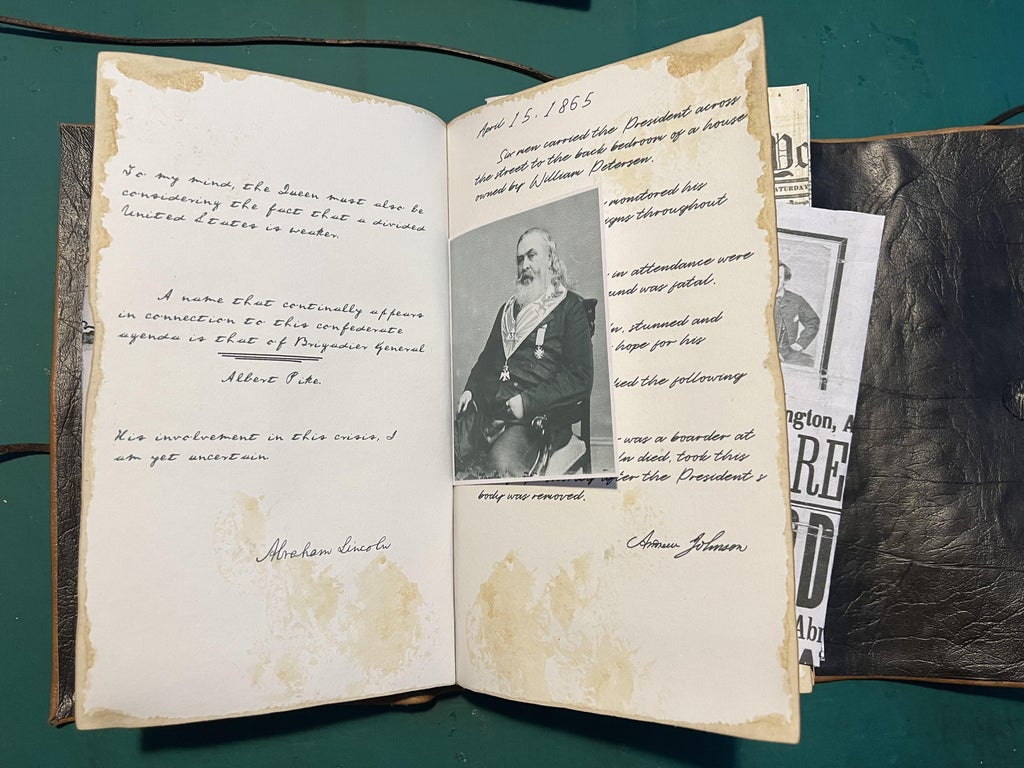 To my mind, the Queen must also be
considering the fact that a divided
United States is weaker.
A name that continually appears
in connection to this confederate
agenda is that of Brigadier General
Albert Pike.
His involvement in this crisis, I
am yet uncertain.
Abraham Lincoln
April 15. 1865
Six men carried the President across
the street to the back bedroom of a house
owned by William Petersen.
monitored his
throughout
in attendance were
was fatal.
stunned and
hope for his
the following
was a boarder at
died, took this
after the President's
body was removed.
Andrew Johnson
SATURDAY